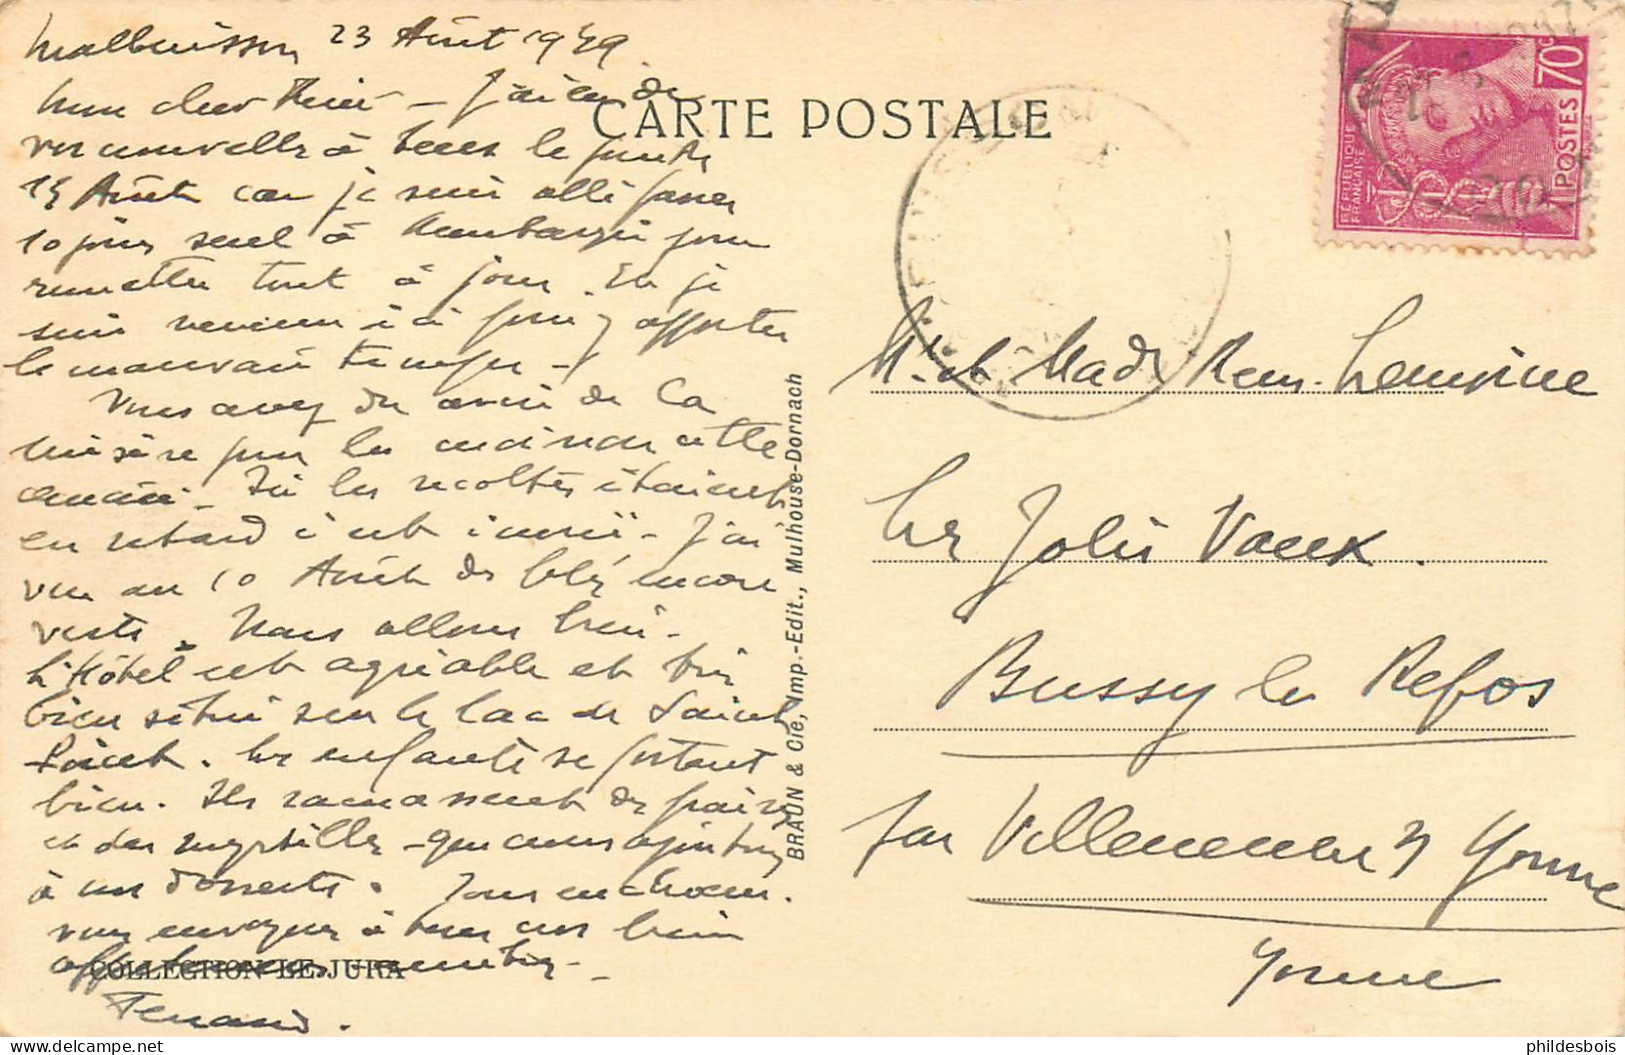 Malbuisson 23 Août 1939
Mon cher René - J'ai eu de
CARTE POSTALE
vos nouvelles à tous le
15 Août car je suis allé passer
10 jours seul à pour
remettre tout à jour. Et je
suis revenu ici pour y apporter
le mauvais temps -
Vous avez dû avoir de la
misère pour les cette
année. Ici les récoltes étaient
en retard c'est inouï - J'ai
vu au 10 Août des blés encore
verts. Nous allons bien -
L'Hôtel est agréable et très
bien situé sur le lac de Saint
Point. Les enfants se portent
bien. Ils ramassent des fraises
et des myrtilles - que nous ajoutons
à nos desserts. Tous en chœur
vous envoyons à tous nos bien
affectueuses amitiés -
COLLECTION LE JURA
Fernand.
BRAUN & Cie, Imp.-Edit., Mulhouse-Dornach
RÉPUBLIQUE FRANÇAISE
POSTES
70c
Mr et Made Lemoine
Les Jolis Vaux.
Bussy le Repos
par Villeneuve s/ Yonne
Yonne
phildesbois